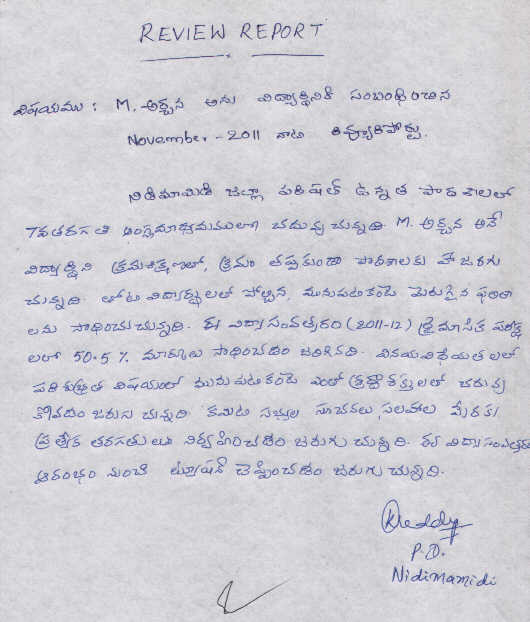 REVIEW REPORT
విషయము : M. అర్చన అను విద్యార్థినికి సంబంధించిన
November - 2011 నాటి రివ్యూరిపోర్టు.
నిడిమామిడి జిల్లా పరిషత్ ఉన్నత పాఠశాలలో
7వతరగతి ఆంగ్లమాధ్యమములో చదువుచున్నది. M. అర్చన అనే
విద్యార్థిని క్రమశిక్షణతో, క్రమం తప్పకుండా పాఠశాలకు హాజరగు
చున్నది. తోటి విద్యార్థులతో పోల్చిన, మునుపటికంటె మెరుగైన ఫలితా
లను సాధించుచున్నది. ఈ విద్యాసంవత్సరం (2011-12) త్రైమాసిక పరీక్ష
లలో 50.5 % మార్కులు సాధించడం జరిగినది. వినయవిధేయతలలో
పరిశుభ్రత విషయంలో మునుపటికంటె ఎంతో శ్రద్ధాశక్తులలో చదువు
కోవడం జరుగుచున్నది. కమిటి సభ్యుల సూచనలు, సలహాల మేరకు
ప్రత్యేక తరగతులు నిర్వహించడం జరుగుచున్నది. ఈ విద్యాసంవత్సరం
ఆరంభం నుంచి ట్యూషన్ చెప్పించడం జరుగుచున్నది.
KReddy
P.D.
Nidimamidi